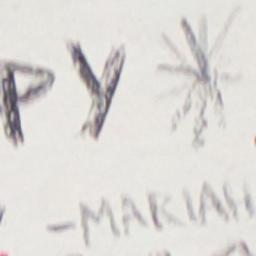 PY
-MARIAH